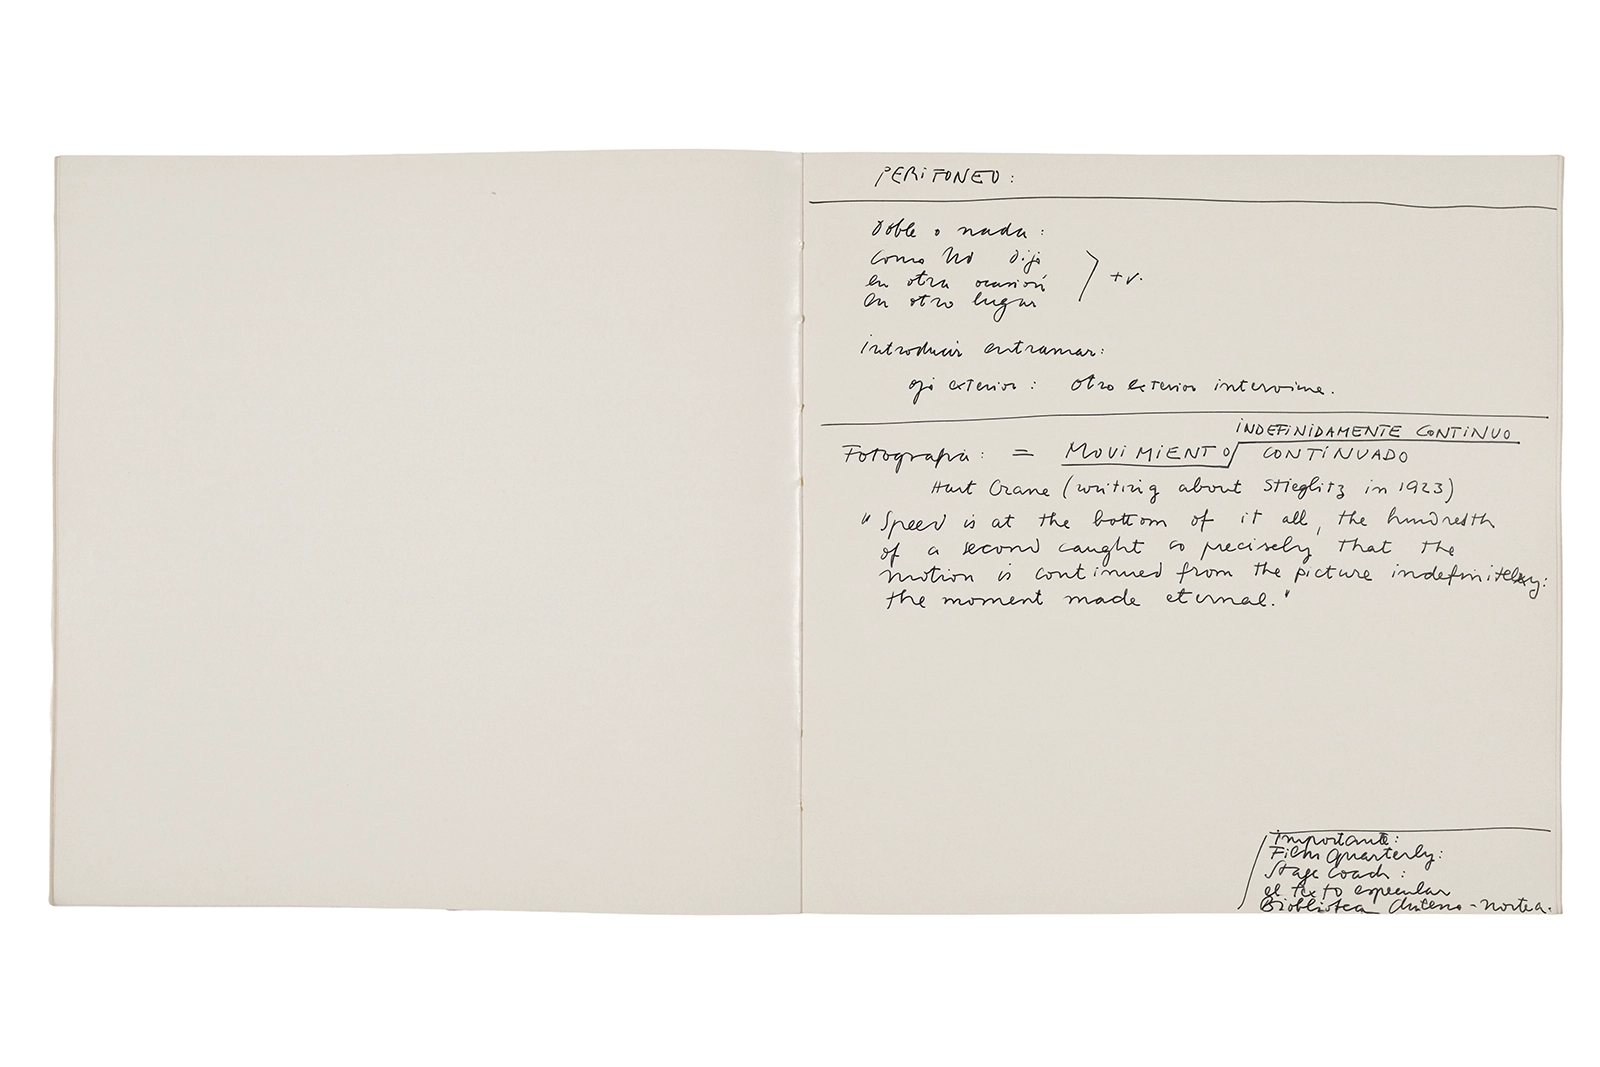 PERITONEO:
Doble o nada:
como No Dijo
en otra ocasión
en otro lugar
+v.
introducir entramar:
ojo exterior: otro exterior interviene.
INDEFINIDAMENTE CONTINUO
Fotografia: = MOVIMIENTO/ CONTINUADO
Hart Crane (writing about Stieglitz in 1923)
"Speed is at the bottom of it all, the hundredth
of a second caught so precisely that the
motion is continued from the picture indefinitely:
the moment made eternal."
importante:
Film Quarterly:
Stage Coach:
el texto especular
Biblioteca